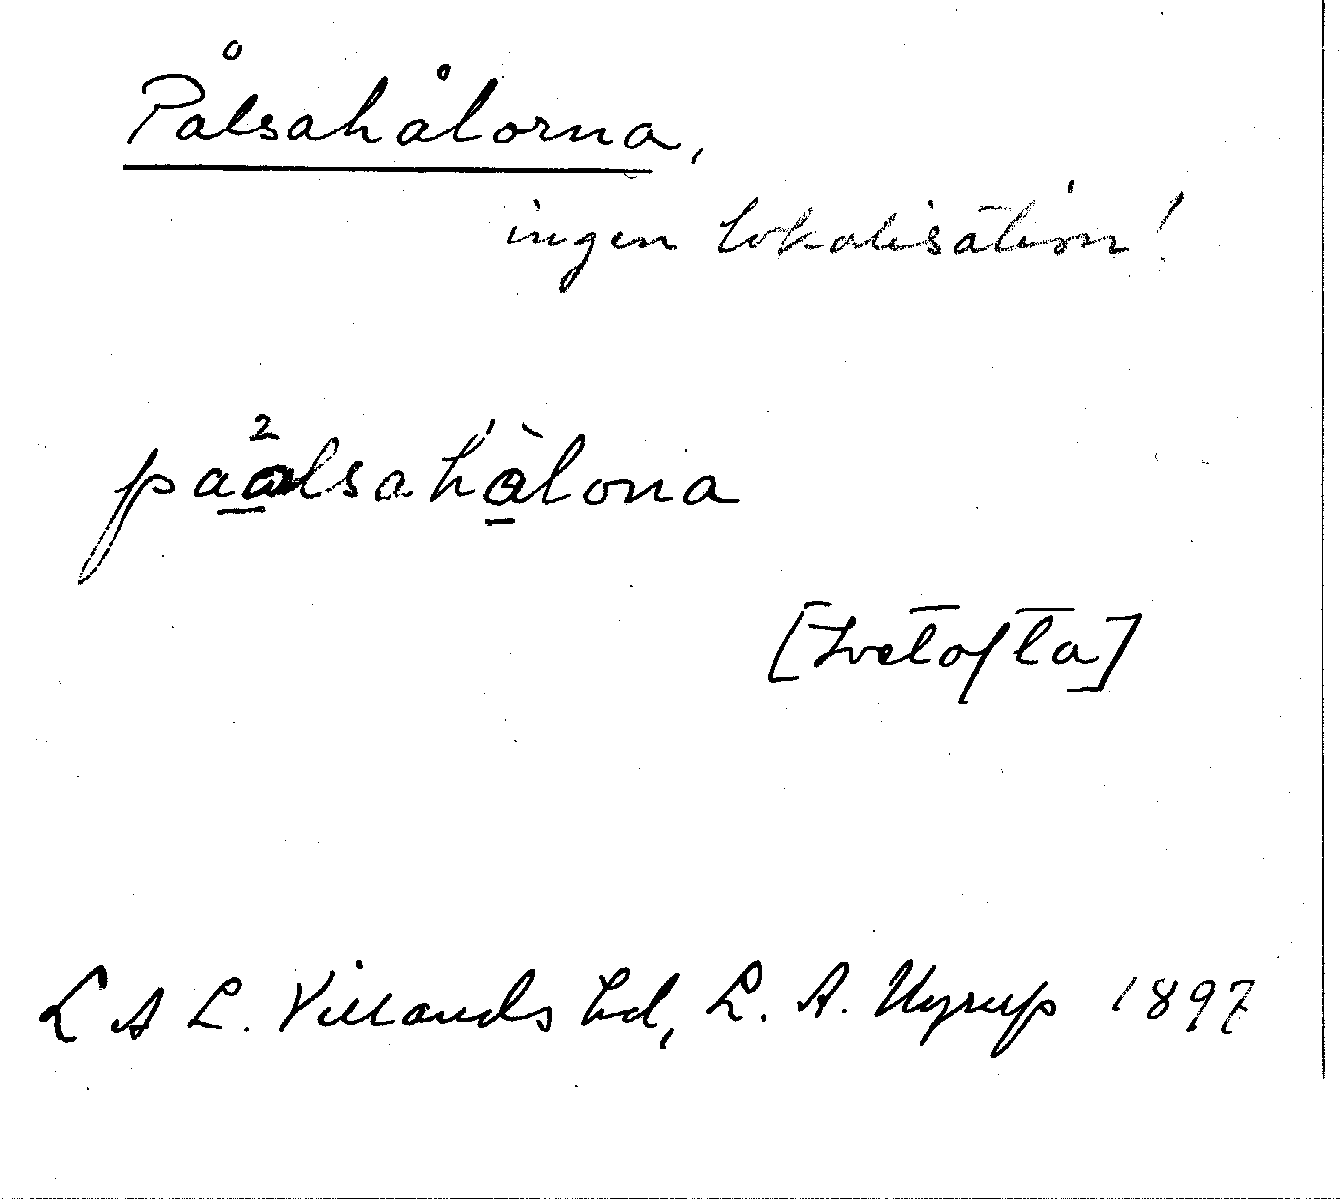 Pålsahålorna,
ingen lokalisation!
paalsahålona
[Ivetofta]
LAL. Villands hd, L. A. Nyrup 1897